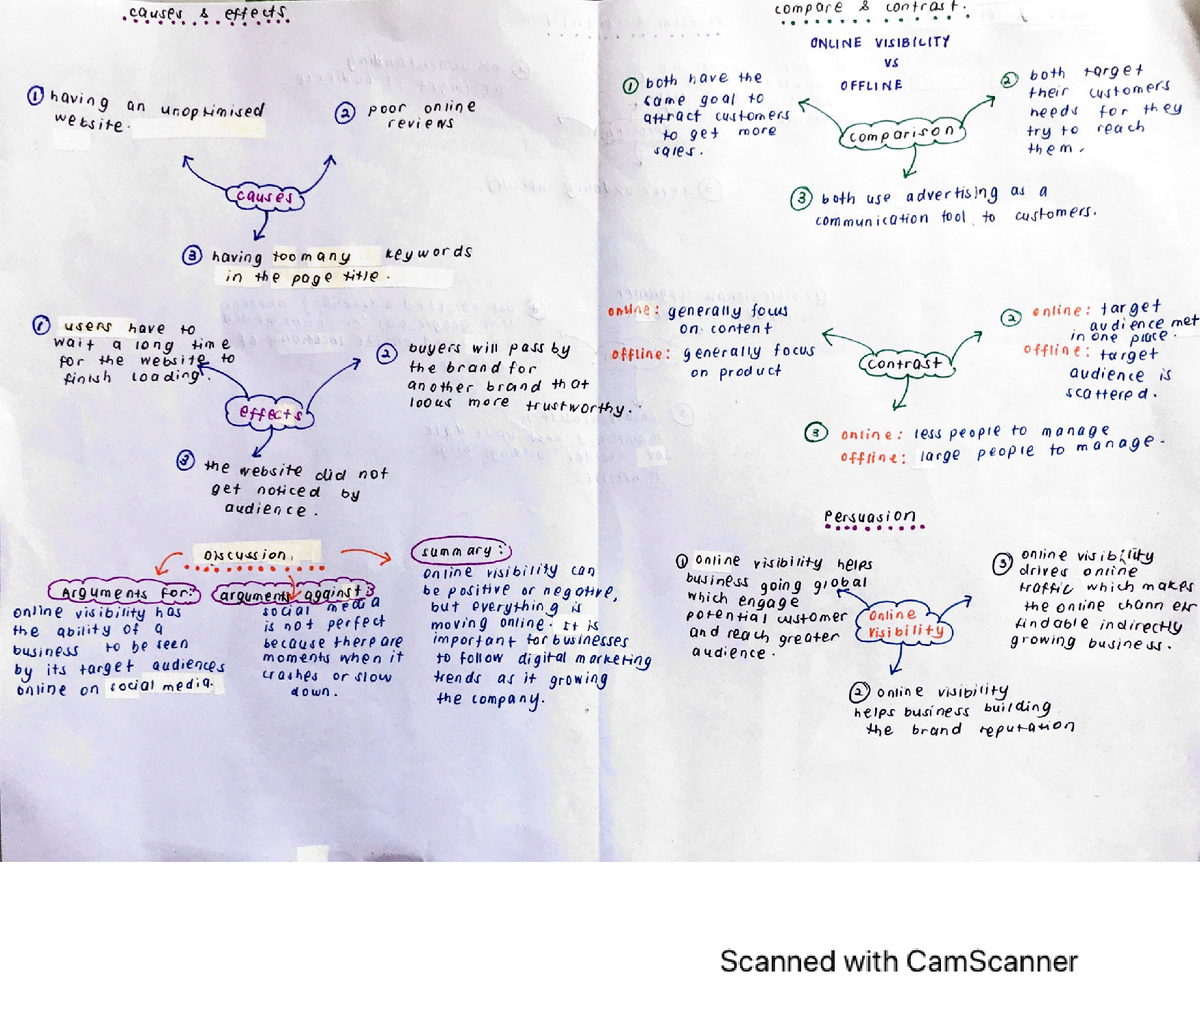 causes & effects.
① having an unoptimised
website.
② poor online
reviews
causes
③ having too many keywords
in the page title.
① users have to
wait a long time
for the website to
finish loading.
② buyers will pass by
the brand for
another brand that
looks more trustworthy.
effects
③ the website did not
get noticed by
audience.
Discussion.
Arguments for:
online visibility has
the ability of a
business to be seen
by its target audiences
online on social media.
arguments against:
social media
is not perfect
because there are
moments when it
crashes or slow
down.
summary:
online visibility can
be positive or negative,
but everything is
moving online. It is
important for businesses
to follow digital marketing
trends as it growing
the company.
compare & contrast.
ONLINE VISIBILITY
VS
OFFLINE
① both have the
same goal to
attract customers
to get more
sales.
② both target
their customers
needs for they
try to reach
them.
comparison
③ both use advertising as a
communication tool to customers.
online: generally focus
on content
offline: generally focus
on product
② online: target
audience met
in one place.
offline: target
audience is
scattered.
contrast
③ online: less people to manage
offline: large people to manage.
Persuasion
① online visibility helps
business going global
which engage
potential customer
and reach greater
audience.
③ online visibility
drives online
traffic which makes
the online channels
findable indirectly
growing business.
online
visibility
② online visibility
helps business building
the brand reputation
Scanned with CamScanner